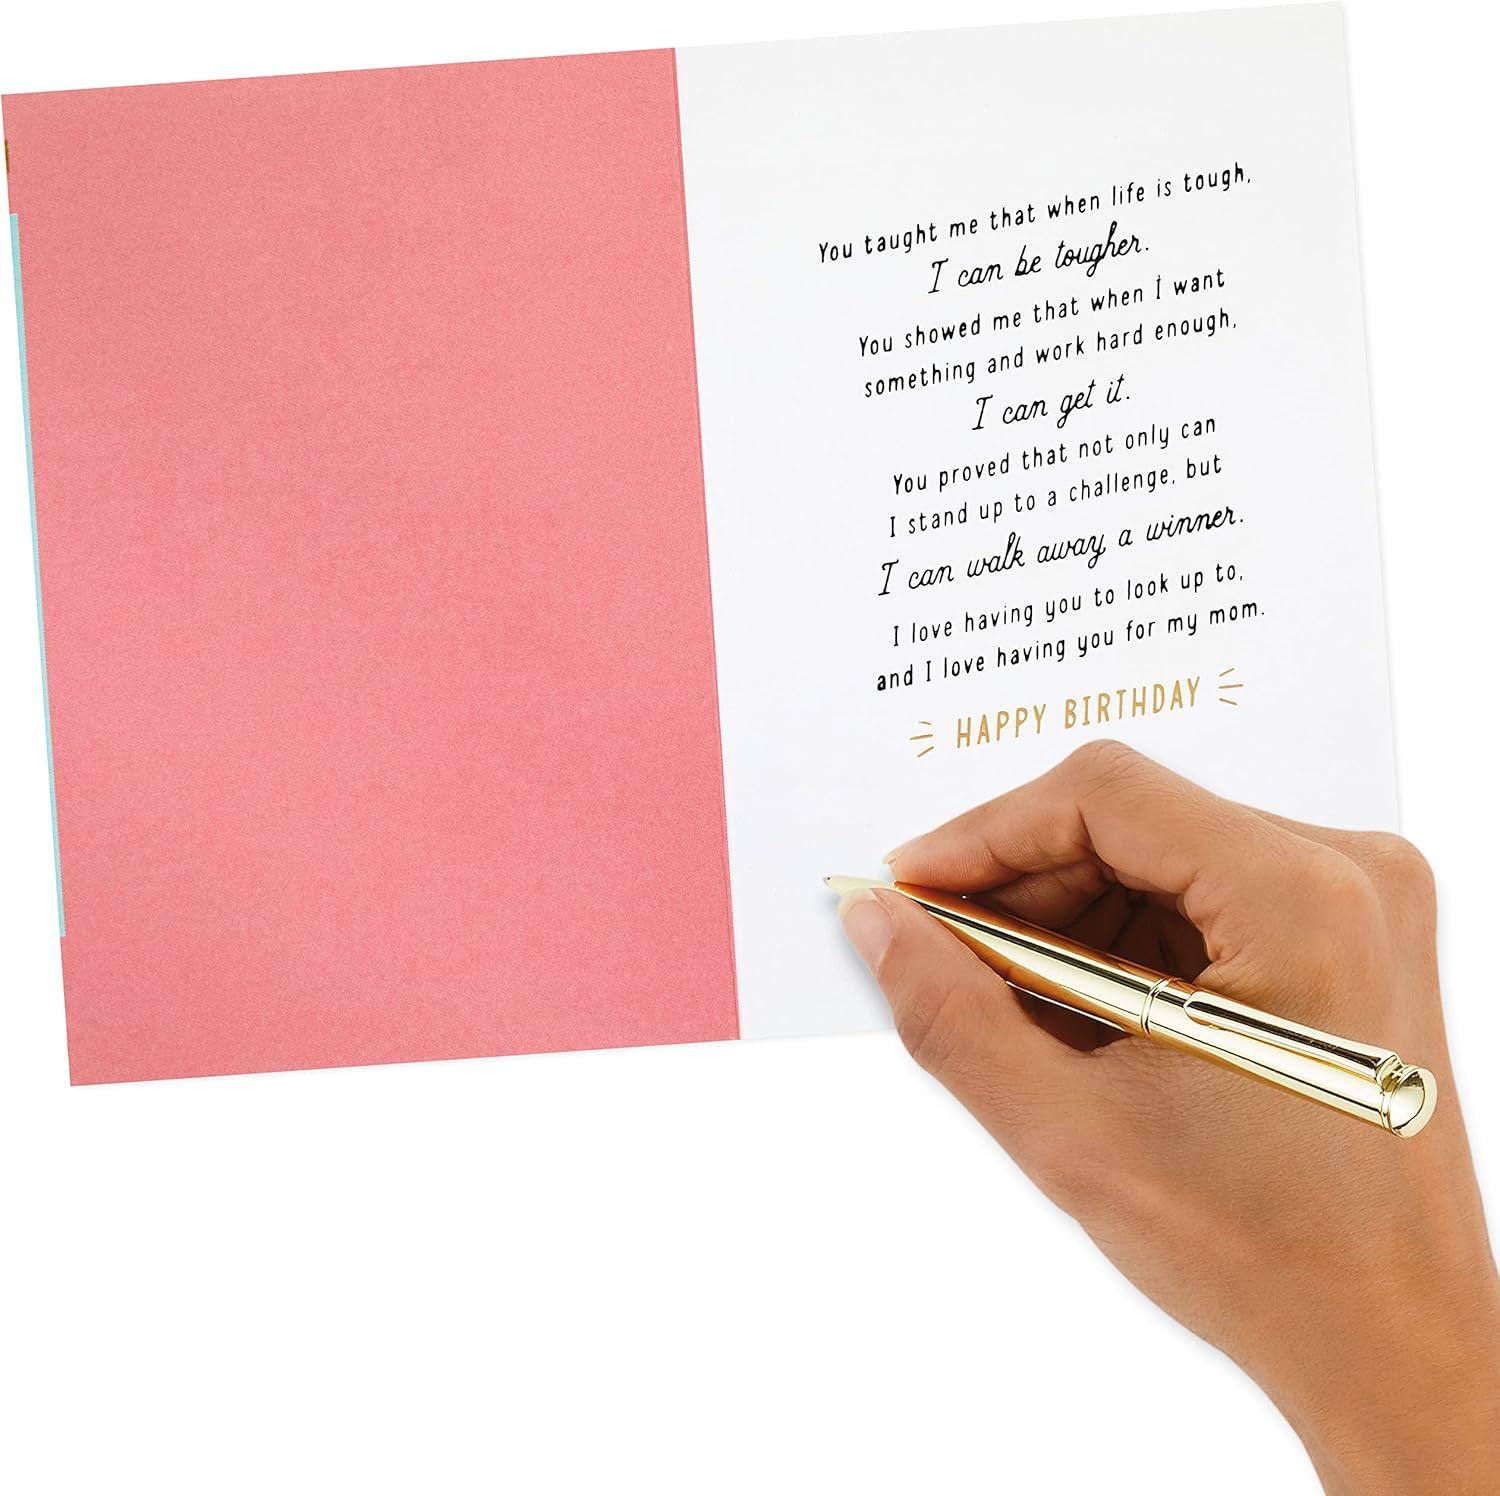 You taught me that when life is tough,
I can be tougher.
You showed me that when I want
something and work hard enough,
I can get it.
You proved that not only can
I stand up to a challenge, but
I can walk away a winner.
I love having you to look up to,
and I love having you for my mom.
HAPPY BIRTHDAY